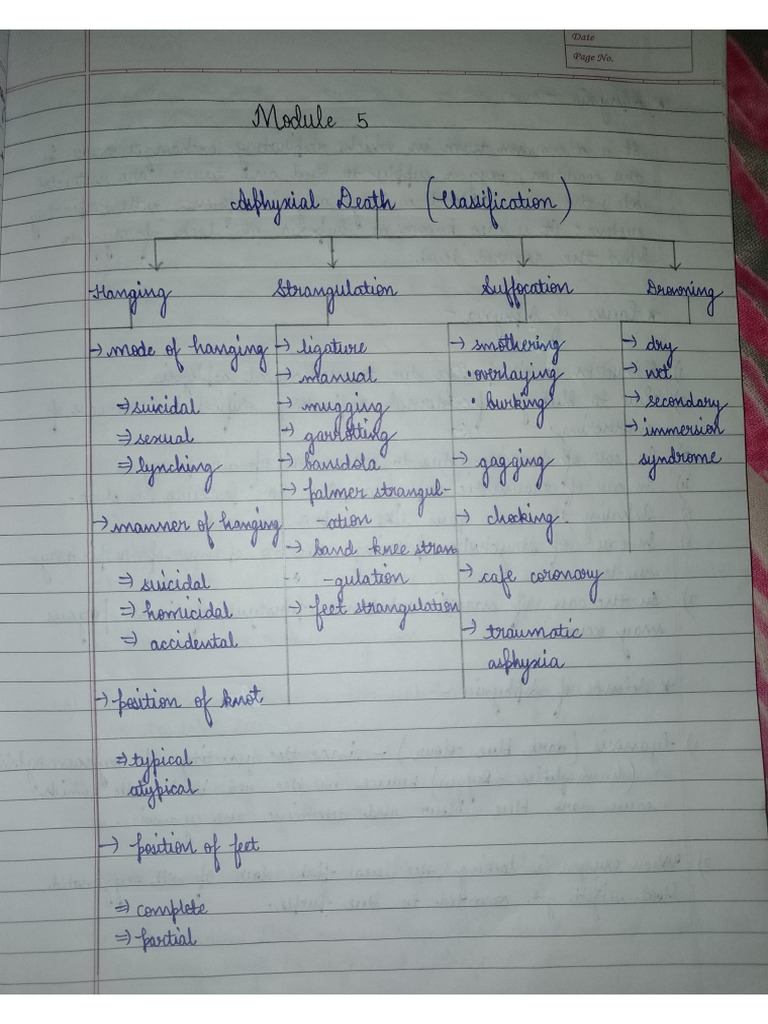 Date
Page No.
Module 5
Asphyxial Death (Classification)
Hanging
→ mode of hanging
⇒ suicidal
⇒ sexual
⇒ lynching
→ manner of hanging
⇒ suicidal
⇒ homicidal
⇒ accidental
→ position of knot
⇒ typical
atypical
→ position of feet
⇒ complete
⇒ partial
Strangulation
→ ligature
→ manual
→ mugging
→ garrotting
→ bansdola
→ palmer strangul-
-ation
→ band knee stran
-gulation
→ feet strangulation
Suffocation
→ smothering
• overlaying
• burking
→ gagging
→ chocking
→ cafe coronary
→ traumatic
asphyxia
Drowning
→ dry
→ wet
→ secondary
→ immersion
syndrome